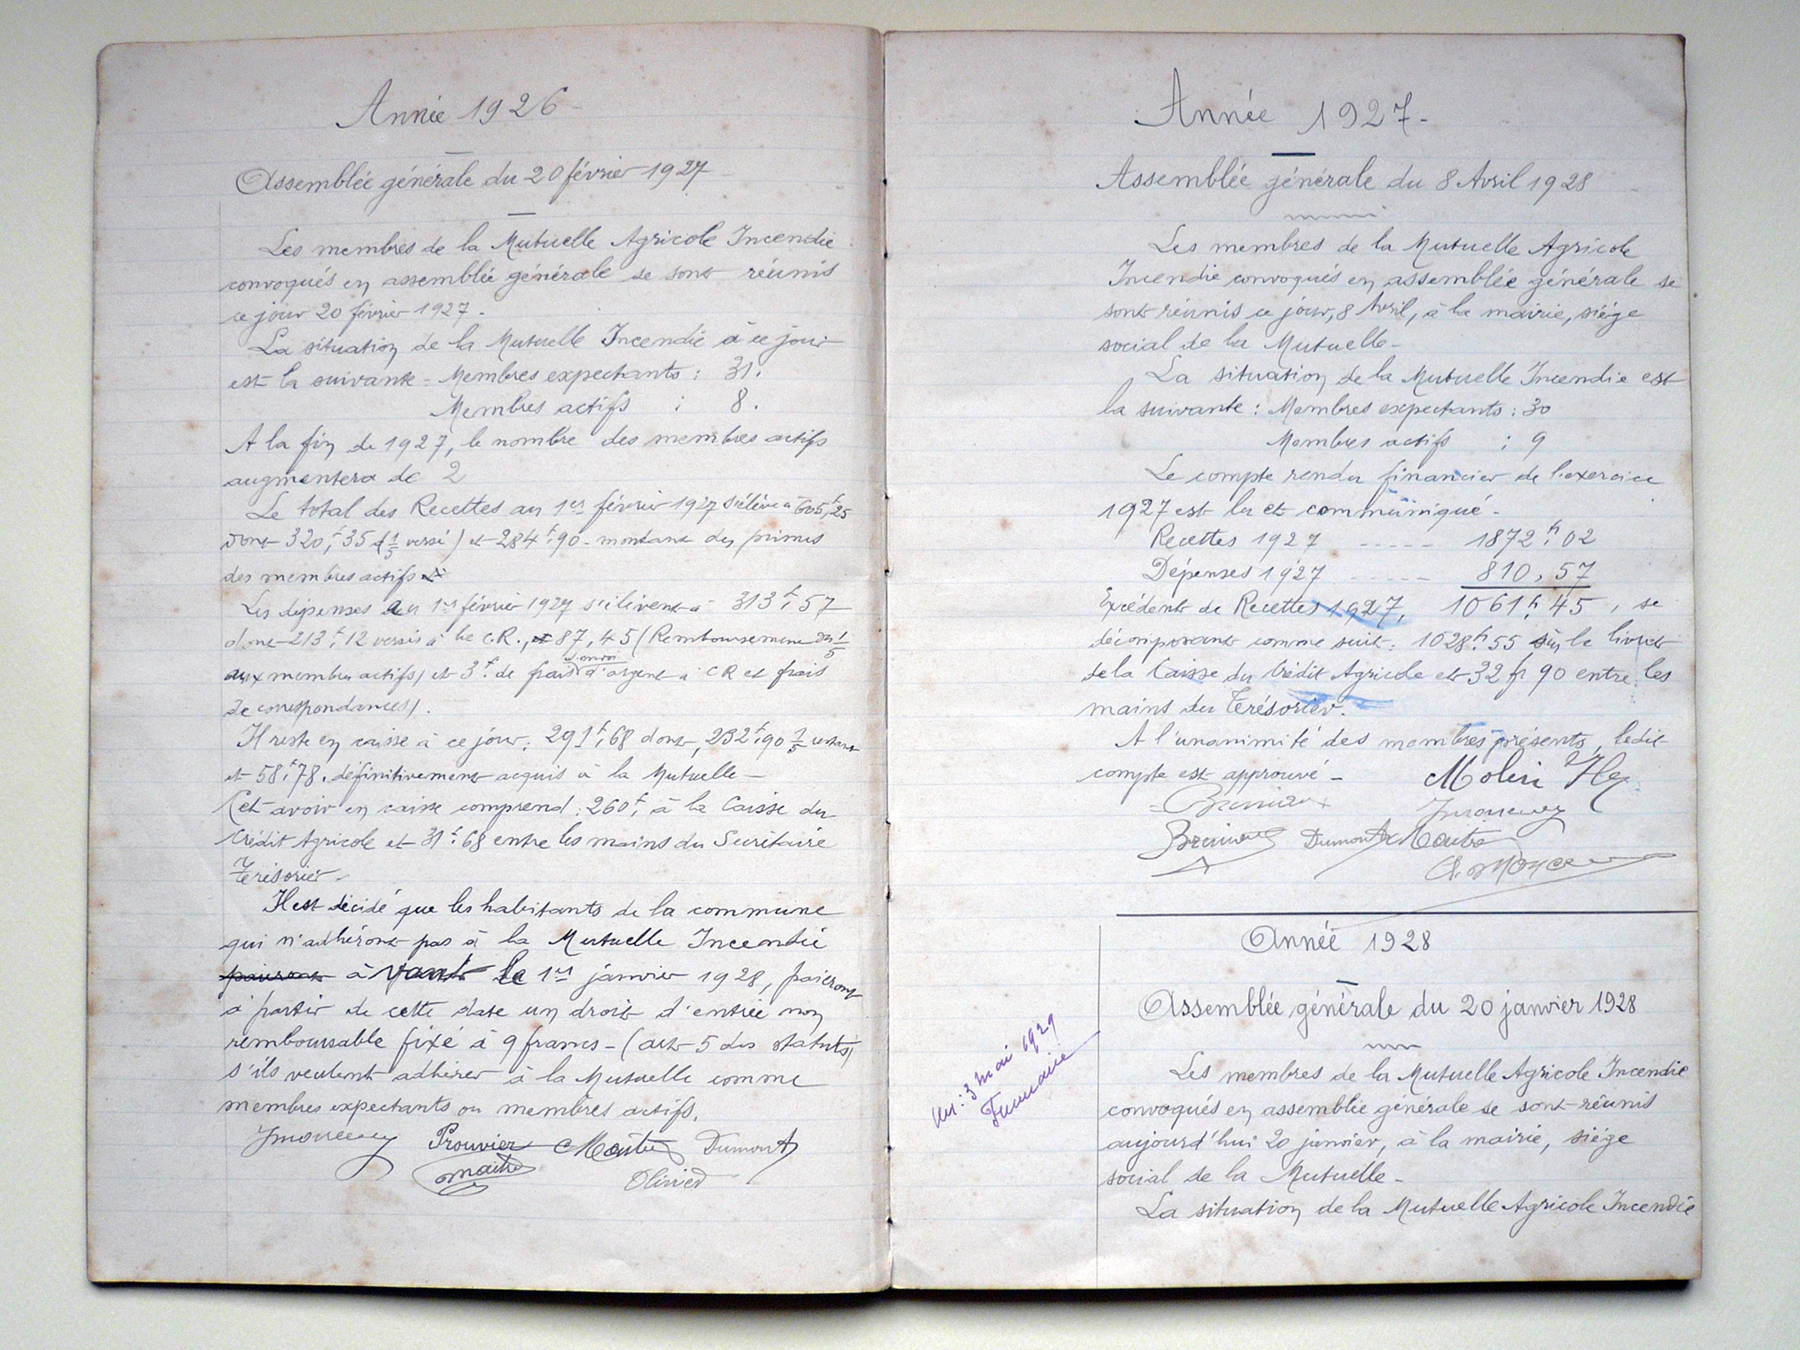 Année 1926 -
Assemblée générale du 20 février 1927 -
Les membres de la Mutuelle Agricole Incendie
convoqués en assemblée générale se sont réunis
ce jour 20 février 1927 -
La situation de la Mutuelle Incendie à ce jour
est la suivante - Membres expectants : 31.
Membres actifs : 8.
A la fin de 1927, le nombre des membres actifs
augmentera de 2
Le total des Recettes au 1er février 1927 s'élève à 605f,25
dont 320f,35 (1/5 versé) et 284f,90 - montant des primes
des membres actifs
Les dépenses au 1er février 1927 s'élèvent à 313f,57
dont 213f,12 versés à la C.R., 87,45 (Remboursement du 1/5
aux membres actifs) et 3f de frais d'envoi d'argent à CR et frais
de correspondances).
Il reste en caisse à ce jour : 291f,68 dont, 232f,90 1/5 restant
et 58f,78. définitivement acquis à la Mutuelle -
Cet avoir en caisse comprend : 260f, à la Caisse du
Crédit Agricole et 31f,68 entre les mains du Secrétaire
Trésorier -
Il est décidé que les habitants de la commune
qui n'adhéront pas à la Mutuelle Incendie
paieront avant le 1er janvier 1928, paieront
à partir de cette date un droit d'entrée non
remboursable fixé à 9 francs - (art 5 des statuts)
s'ils veulent adhérer à la Mutuelle comme
membres expectants ou membres actifs.
Prouvier Dumont
Olivier
Année 1927 -
Assemblée générale du 8 Avril 1928
Les membres de la Mutuelle Agricole
Incendie convoqués en assemblée générale se
sont réunis ce jour, 8 Avril, à la mairie, siége
social de la Mutuelle -
La situation de la Mutuelle Incendie est
la suivante : Membres expectants : 30
Membres actifs : 9
Le compte rendu financier de l'exercice
1927 est lu et communiqué -
Recettes 1927 ----- 1872f,02
Dépenses 1927 ----- 810,57
Excédent de Recettes 1927, 1061f,45, se
décomposant comme suit : 1028f,55 sur le livret
de la Caisse du Crédit Agricole et 32 fr 90 entre les
mains du Trésorier.
A l'unanimité des membres présents, ledit
compte est approuvé -
Dumont
Année 1928
Assemblée générale du 20 janvier 1928
Les membres de la Mutuelle Agricole Incendie
convoqués en assemblée générale se sont réunis
aujourd'hui 20 janvier, à la mairie, siége
social de la Mutuelle -
La situation de la Mutuelle Agricole Incendie
Vu : 3 mai 1929